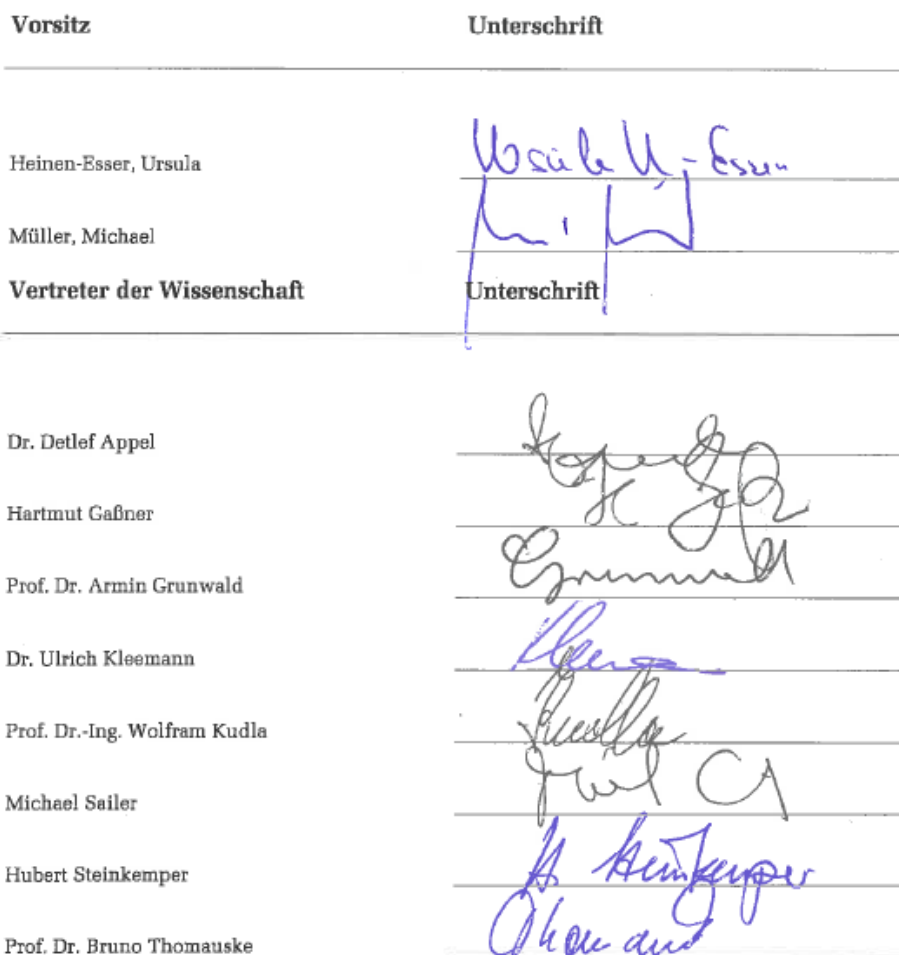 Vorsitz Unterschrift
Heinen-Esser, Ursula Ursula H.-Esser
Müller, Michael
Vertreter der Wissenschaft Unterschrift
Dr. Detlef Appel Appel
Hartmut Gaßner
Prof. Dr. Armin Grunwald Grunwald
Dr. Ulrich Kleemann
Prof. Dr.-Ing. Wolfram Kudla Kudla
Michael Sailer
Hubert Steinkemper H. Steinkemper
Prof. Dr. Bruno Thomauske